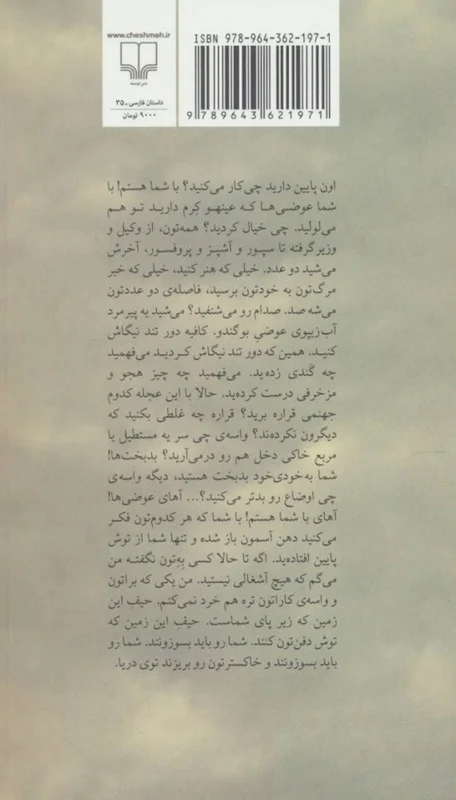 www.cheshmeh.ir
نشرچشمه
داستان فارسی ـ ۳۵
۹۰۰۰ تومان
ISBN 978-964-362-197-1
9 789643 621971
اون پایین دارید چی‌کار می‌کنید؟ با شما هستم! با
شما عوضی‌ها که عینهو کِرم دارید تو هم
می‌لولید. چی خیال کردید؟ همه‌تون، از وکیل و
وزیر گرفته تا سپور و آشپز و پروفسور، آخرش
می‌شید دو عدد. خیلی که هنر کنید، خیلی که خبر
مرگ‌تون به خودتون برسید، فاصله‌ی دو عددتون
می‌شه صد. صدام رو می‌شنفید؟ می‌شید یه پیرمرد
آب‌زیپوی عوضیِ بوگندو. کافیه دور تند نیگاش
کنید. همین که دور تند نیگاش کردید می‌فهمید
چه گَندی زده‌ید. می‌فهمید چه چیز هجو و
مزخرفی درست کرده‌ید. حالا با این عجله کدوم
جهنمی قراره برید؟ قراره چه غلطی بکنید که
دیگرون نکرده‌ند؟ واسه‌ی چی سر یه مستطیل یا
مربع خاکی دخل هم رو درمی‌آرید؟ بدبخت‌ها!
شما به‌خودی‌خود بدبخت هستید، دیگه واسه‌ی
چی اوضاع رو بدتر می‌کنید؟... آهای عوضی‌ها!
آهای با شما هستم! با شما که هر کدوم‌تون فکر
می‌کنید دهن آسمون باز شده و تنها شما از توش
پایین افتاده‌ید. اگه تا حالا کسی بِه‌تون نگفته من
می‌گم که هیچ آشغالی نیستید. من یکی که براتون
و واسه‌ی کاراتون تره هم خرد نمی‌کنم. حیفِ این
زمین که زیر پای شماست. حیفِ این زمین که
توش دفن‌تون کنند. شما رو باید بسوزونند. شما رو
باید بسوزونند و خاکسترتون رو بریزند توی دریا.